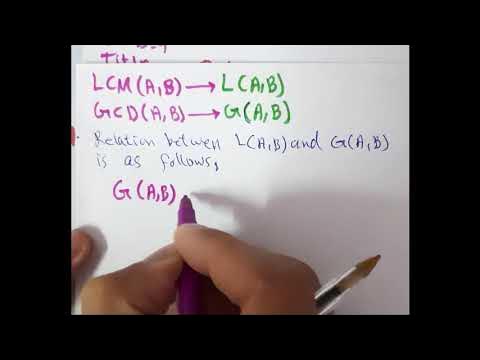 Title
LCM(A,B) → L(A,B)
GCD(A,B) → G(A,B)
Relation between L(A,B) and G(A,B)
is as follows,
G(A,B)